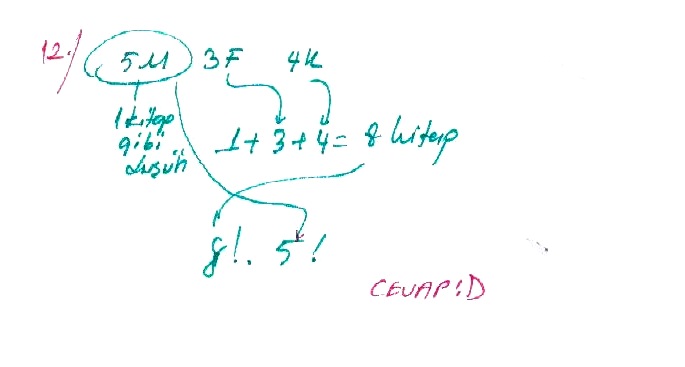 12.) 5M 3F 4K
1 kitap
gibi
düşün
1 + 3 + 4 = 8 kitap
8! . 5!
CEVAP: D